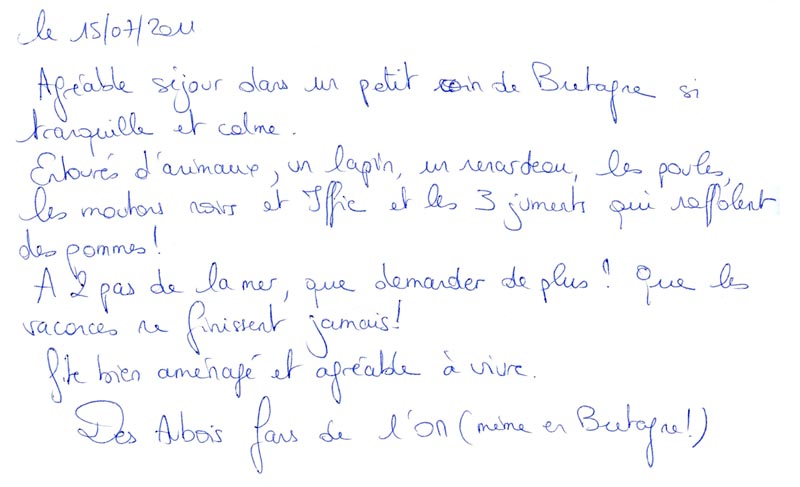 le 15/07/2011
Agréable séjour dans un petit coin de Bretagne si
tranquille et calme.
Entourés d'animaux, un lapin, un renardeau, les poules,
les moutons noirs et Iffic et les 3 juments qui raffolent
des pommes!
A 2 pas de la mer, que demander de plus! Que les
vacances ne finissent jamais!
Gite bien aménagé et agréable à vivre.
Des Aubois fans de l'ON (même en Bretagne!)